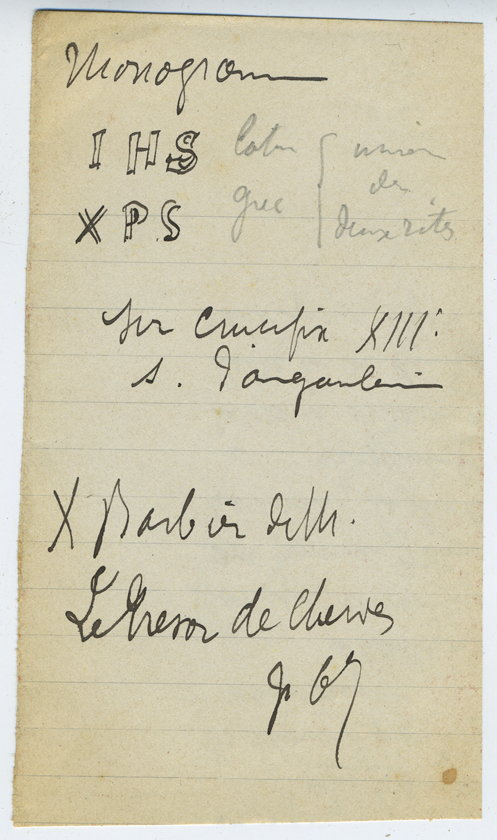 Monogramme
IHS latin
XPS grec
union
des
deux rites
sur crucifix XIIIe
s. d'Angoulême
X Barbier de M.
Le trésor de Cherves
p 67